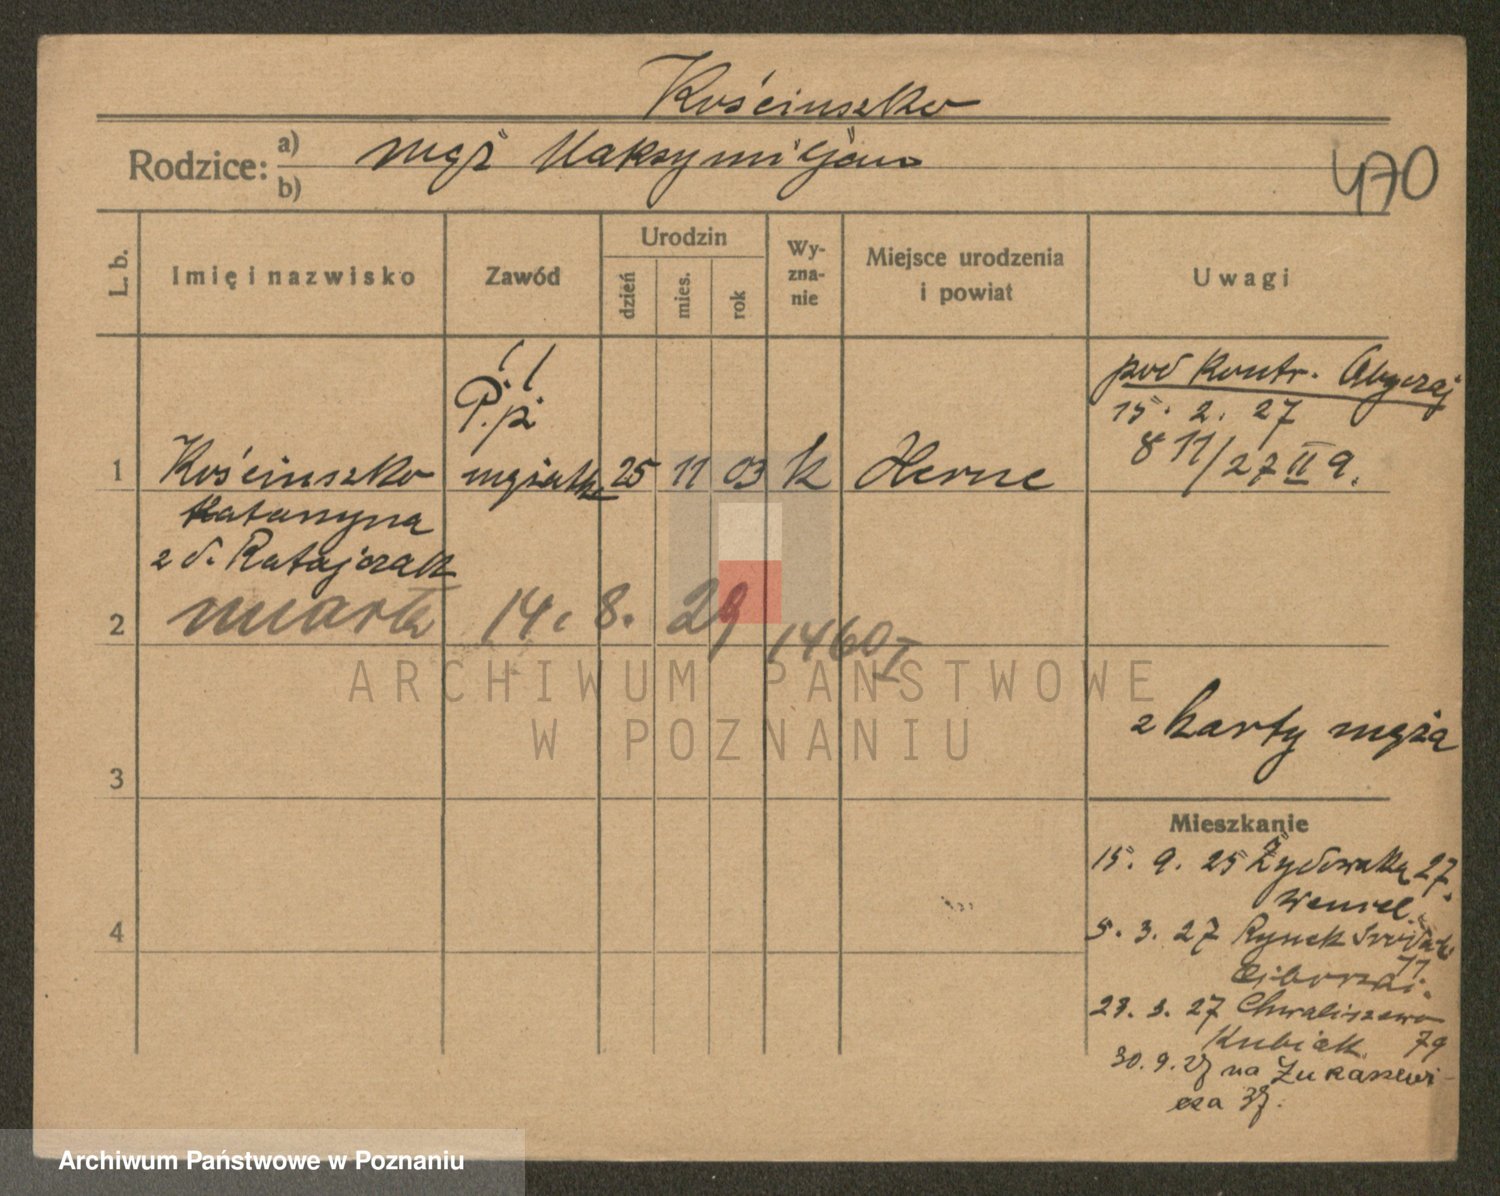 Kościuszko
Rodzice: a) mąż Maksymiljan
b)
470
L. b.
Imię i nazwisko
Zawód
Urodzin
dzień
mies.
rok
Wy-
zna-
nie
Miejsce urodzenia
i powiat
Uwagi
P.p.
pod kontr. Obyczaj
15. 2. 27
8 11/27 II 9.
1 Kościuszko mężatka 25 11 03 k Herne
Katarzyna
z d. Ratajczak
2 umarła 14. 8. 29 1460 I
z karty męża
3
4
Mieszkanie
15. 9. 25 Żydowska 27.
Wenzel.
5. 3. 27 Rynek Śródecki
11
23. 3. 27 Chwaliszewo
Kubiak 79
30. 9. 27 na Łukaszewi-
cza 37.
ARCHIWUM PAŃSTWOWE
W POZNANIU
Archiwum Państwowe w Poznaniu